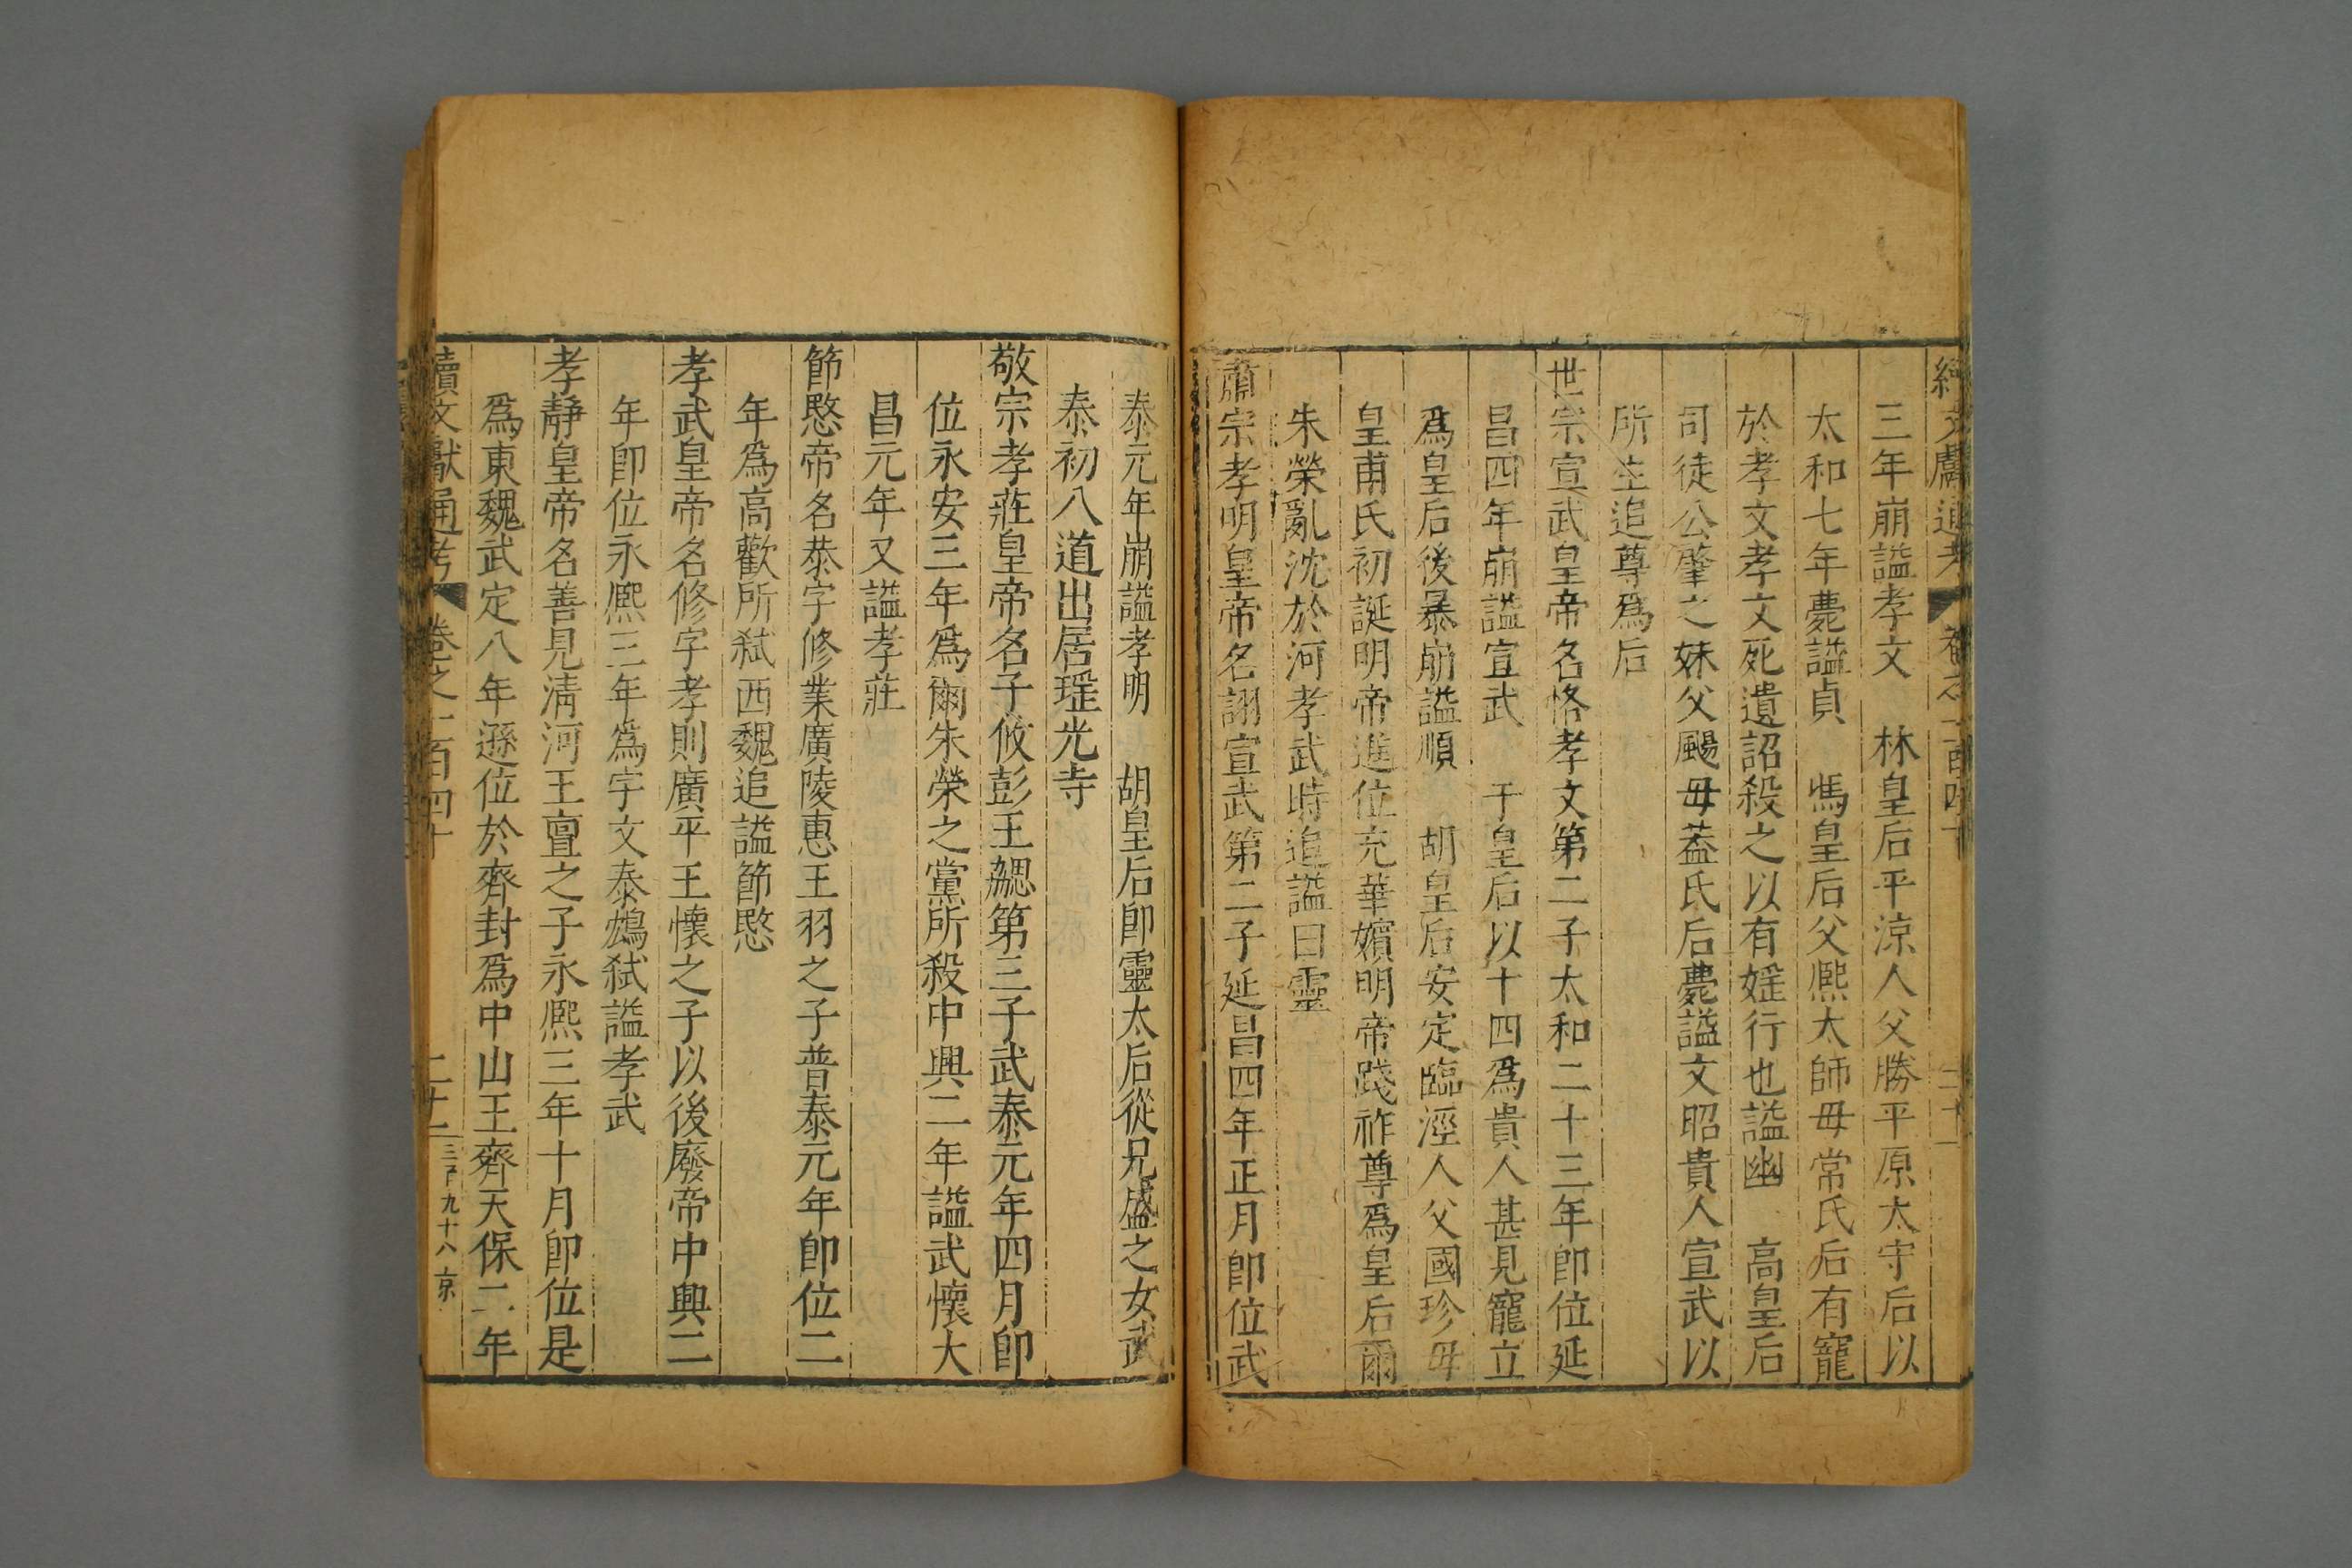 續文獻通考 卷之二百四十 二十一
三年崩謚孝文 林皇后平涼人父勝平原太守后以
太和七年薨謚貞 馮皇后父熈太師毋常氏后有寵
於孝文孝文死遺詔殺之以有婬行也謚幽 高皇后
司徒公肇之妹父颺毋蓋氏后薨謚文昭貴人宣武以
所生追尊爲后
世宗宣武皇帝名恪孝文第二子太和二十三年卽位延
昌四年崩謚宣武 于皇后以十四爲貴人甚見寵立
爲皇后後暴崩謚順 胡皇后安定臨涇人父國珍毋
皇甫氏初誕明帝進位充華嬪明帝踐祚尊爲皇后爾
朱榮亂沈於河孝武時追謚曰靈
肅宗孝明皇帝名詡宣武第二子延昌四年正月卽位武
泰元年崩謚孝明 胡皇后卽靈太后從兄盛之女武
泰初入道出居瑶光寺
敬宗孝莊皇帝名子攸彭王勰第三子武泰元年四月卽
位永安三年爲爾朱榮之黨所殺中興二年謚武懷大
昌元年又謚孝莊
節愍帝名恭字修業廣陵惠王羽之子普泰元年卽位二
年爲高歡所弑西魏追謚節愍
孝武皇帝名修字孝則廣平王懷之子以後廢帝中興二
年卽位永熈三年爲宇文泰鴆弑謚孝武
孝靜皇帝名善見淸河王亶之子永熈三年十月卽位是
爲東魏武定八年遜位於齊封爲中山王齊天保二年
續文獻通考 卷之二百四十 二十二 三百九十八 京